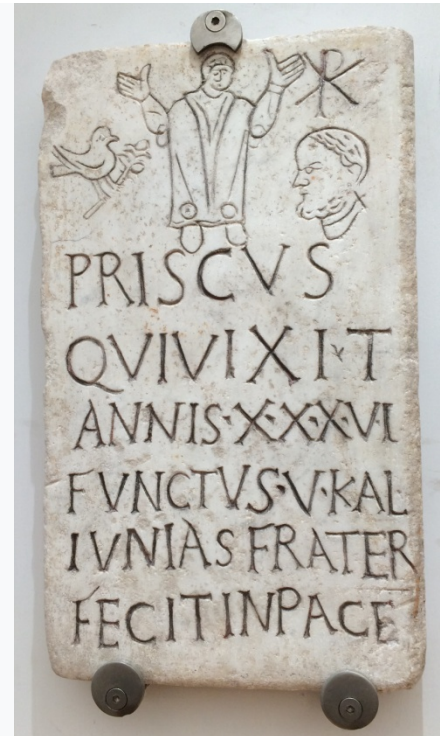 PRISCVS
QVIVIXI·T
ANNIS·X·X·X·VI
FVNCTVS·V·KAL
IVNIAS FRATER
FECITINPACE